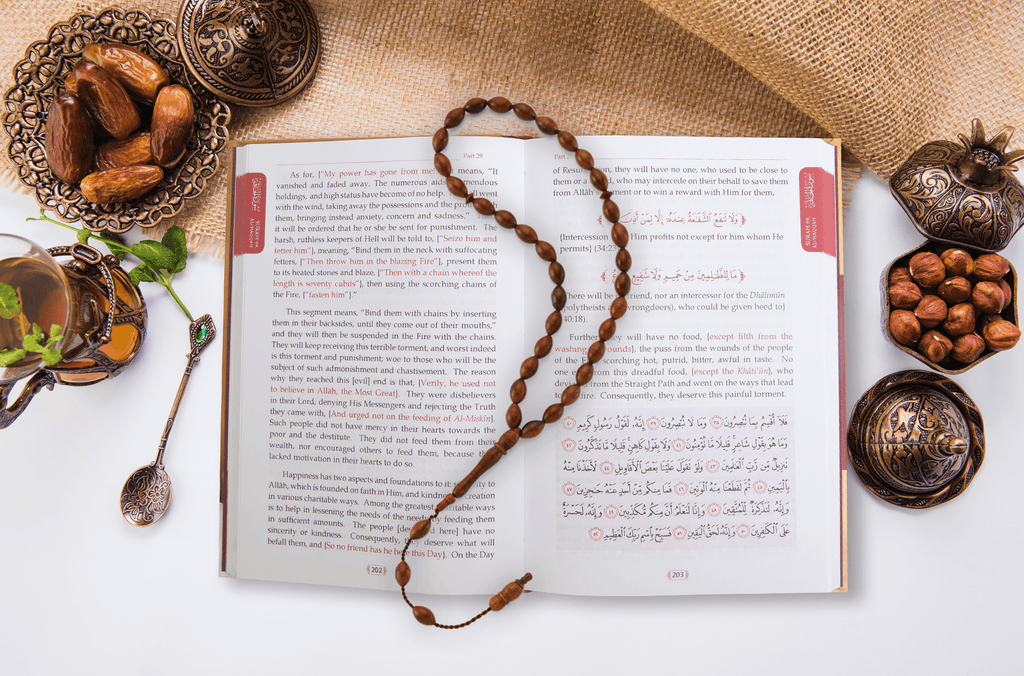 Part 29
As for, {"My power has gone from me means, "It
vanished and faded away. The numerous aids mendous
holdings, and high status have become of no help. ll went
with the wind, taking away the possessions and the pro with
them, bringing instead anxiety, concern and sadness." The
it will be ordered that he or she be sent for punishment. The
harsh, ruthless keepers of Hell will be told to, {"Seize him and
fetter him"}, meaning, "Bind them in the neck with suffocating
fetters, {"Then throw him in the blazing Fire"}, present them
to its heated stones and blaze, {"Then with a chain whereof the
length is seventy cubits"}, then using the scorching chains of
the Fire, {"fasten him"}."
This segment means, "Bind them with chains by inserting
them in their backsides, until they come out of their mouths,"
and they will then be suspended in the Fire with the chains.
They will keep receiving this terrible torment, and worst indeed
is this torment and punishment; woe to those who will be the
subject of such admonishment and chastisement. The reason
why they reached this [evil] end is that, {Verily, he used not
to believe in Allāh, the Most Great}. They were disbelievers
in their Lord, denying His Messengers and rejecting the Truth
they came with, {And urged not on the feeding of Al-Miskīn}.
Such people did not have mercy in their hearts towards the
poor and the destitute. They did not feed them from their
wealth, nor encouraged others to feed them, because the
lacked motivation in their hearts to do so.
Happiness has two aspects and foundations to it: sincerity to
Allāh, which is founded on faith in Him, and kindness creation
in various charitable ways. Among the greatest charitable ways
is to help in lessening the needs of the needy by feeding them
in sufficient amounts. The people [des d here] have no
sincerity or kindness. Consequently, they deserve what will
befall them, and {So no friend has he here this Day}. On the Day
202
SURAH 69
AL-HAQQAH
Part 29
of Resurrection, they will have no one, who used to be close to
them or a ed, who may intercede on their behalf to save them
from Allāh's ment or to win a reward with Him for them,
﴿وَلَا تَنفَعُ ٱلشَّفَـٰعَةُ عِندَهُۥٓ إِلَّا لِمَنْ أَذِنَ لَهُۥ﴾
{Intercession Him profits not except for him whom He
permits} (34:23)
﴿مَا لِلظَّـٰلِمِينَ مِنْ حَمِيمٍ وَلَا شَفِيعٍ﴾
{There will be friend, nor an intercessor for the Dhālimūn
(polytheists wrongdoers), who could be given heed to}
(40:18).
Further they will have no food, {except filth from the
washing of wounds}, the puss from the wounds of the people
of the Fire scorching, hot, putrid, bitter, awful in taste. No
one from this dreadful food, {except the Khāti'ūn}, who
devi from the Straight Path and went on the ways that lead
to fire. Consequently, they deserve this painful torment.
فَلَآ أُقْسِمُ بِمَا تُبْصِرُونَ ٣٨ وَمَا لَا تُبْصِرُونَ ٣٩ إِنَّهُۥ لَقَوْلُ رَسُولٍ كَرِيمٍ ٤٠
وَمَا هُوَ بِقَوْلِ شَاعِرٍ قَلِيلًا مَّا تُؤْمِنُونَ ٤١ وَلَا بِقَوْلِ كَاهِنٍ قَلِيلًا مَّا تَذَكَّرُونَ ٤٢
تَنزِيلٌ مِّن رَّبِّ ٱلْعَـٰلَمِينَ ٤٣ وَلَوْ تَقَوَّلَ عَلَيْنَا بَعْضَ ٱلْأَقَاوِيلِ ٤٤ لَأَخَذْنَا مِنْهُ
بِٱلْيَمِينِ ٤٥ ثُمَّ لَقَطَعْنَا مِنْهُ ٱلْوَتِينَ ٤٦ فَمَا مِنكُم مِّنْ أَحَدٍ عَنْهُ حَـٰجِزِينَ ٤٧
وَإِنَّهُۥ لَتَذْكِرَةٌ لِّلْمُتَّقِينَ ٤٨ وَإِنَّا لَنَعْلَمُ أَنَّ مِنكُم مُّكَذِّبِينَ ٤٩ وَإِنَّهُۥ لَحَسْرَةٌ
عَلَى ٱلْكَـٰفِرِينَ ٥٠ وَإِنَّهُۥ لَحَقُّ ٱلْيَقِينِ ٥١ فَسَبِّحْ بِٱسْمِ رَبِّكَ ٱلْعَظِيمِ ٥٢
203
SURAH 69
AL-HAQQAH